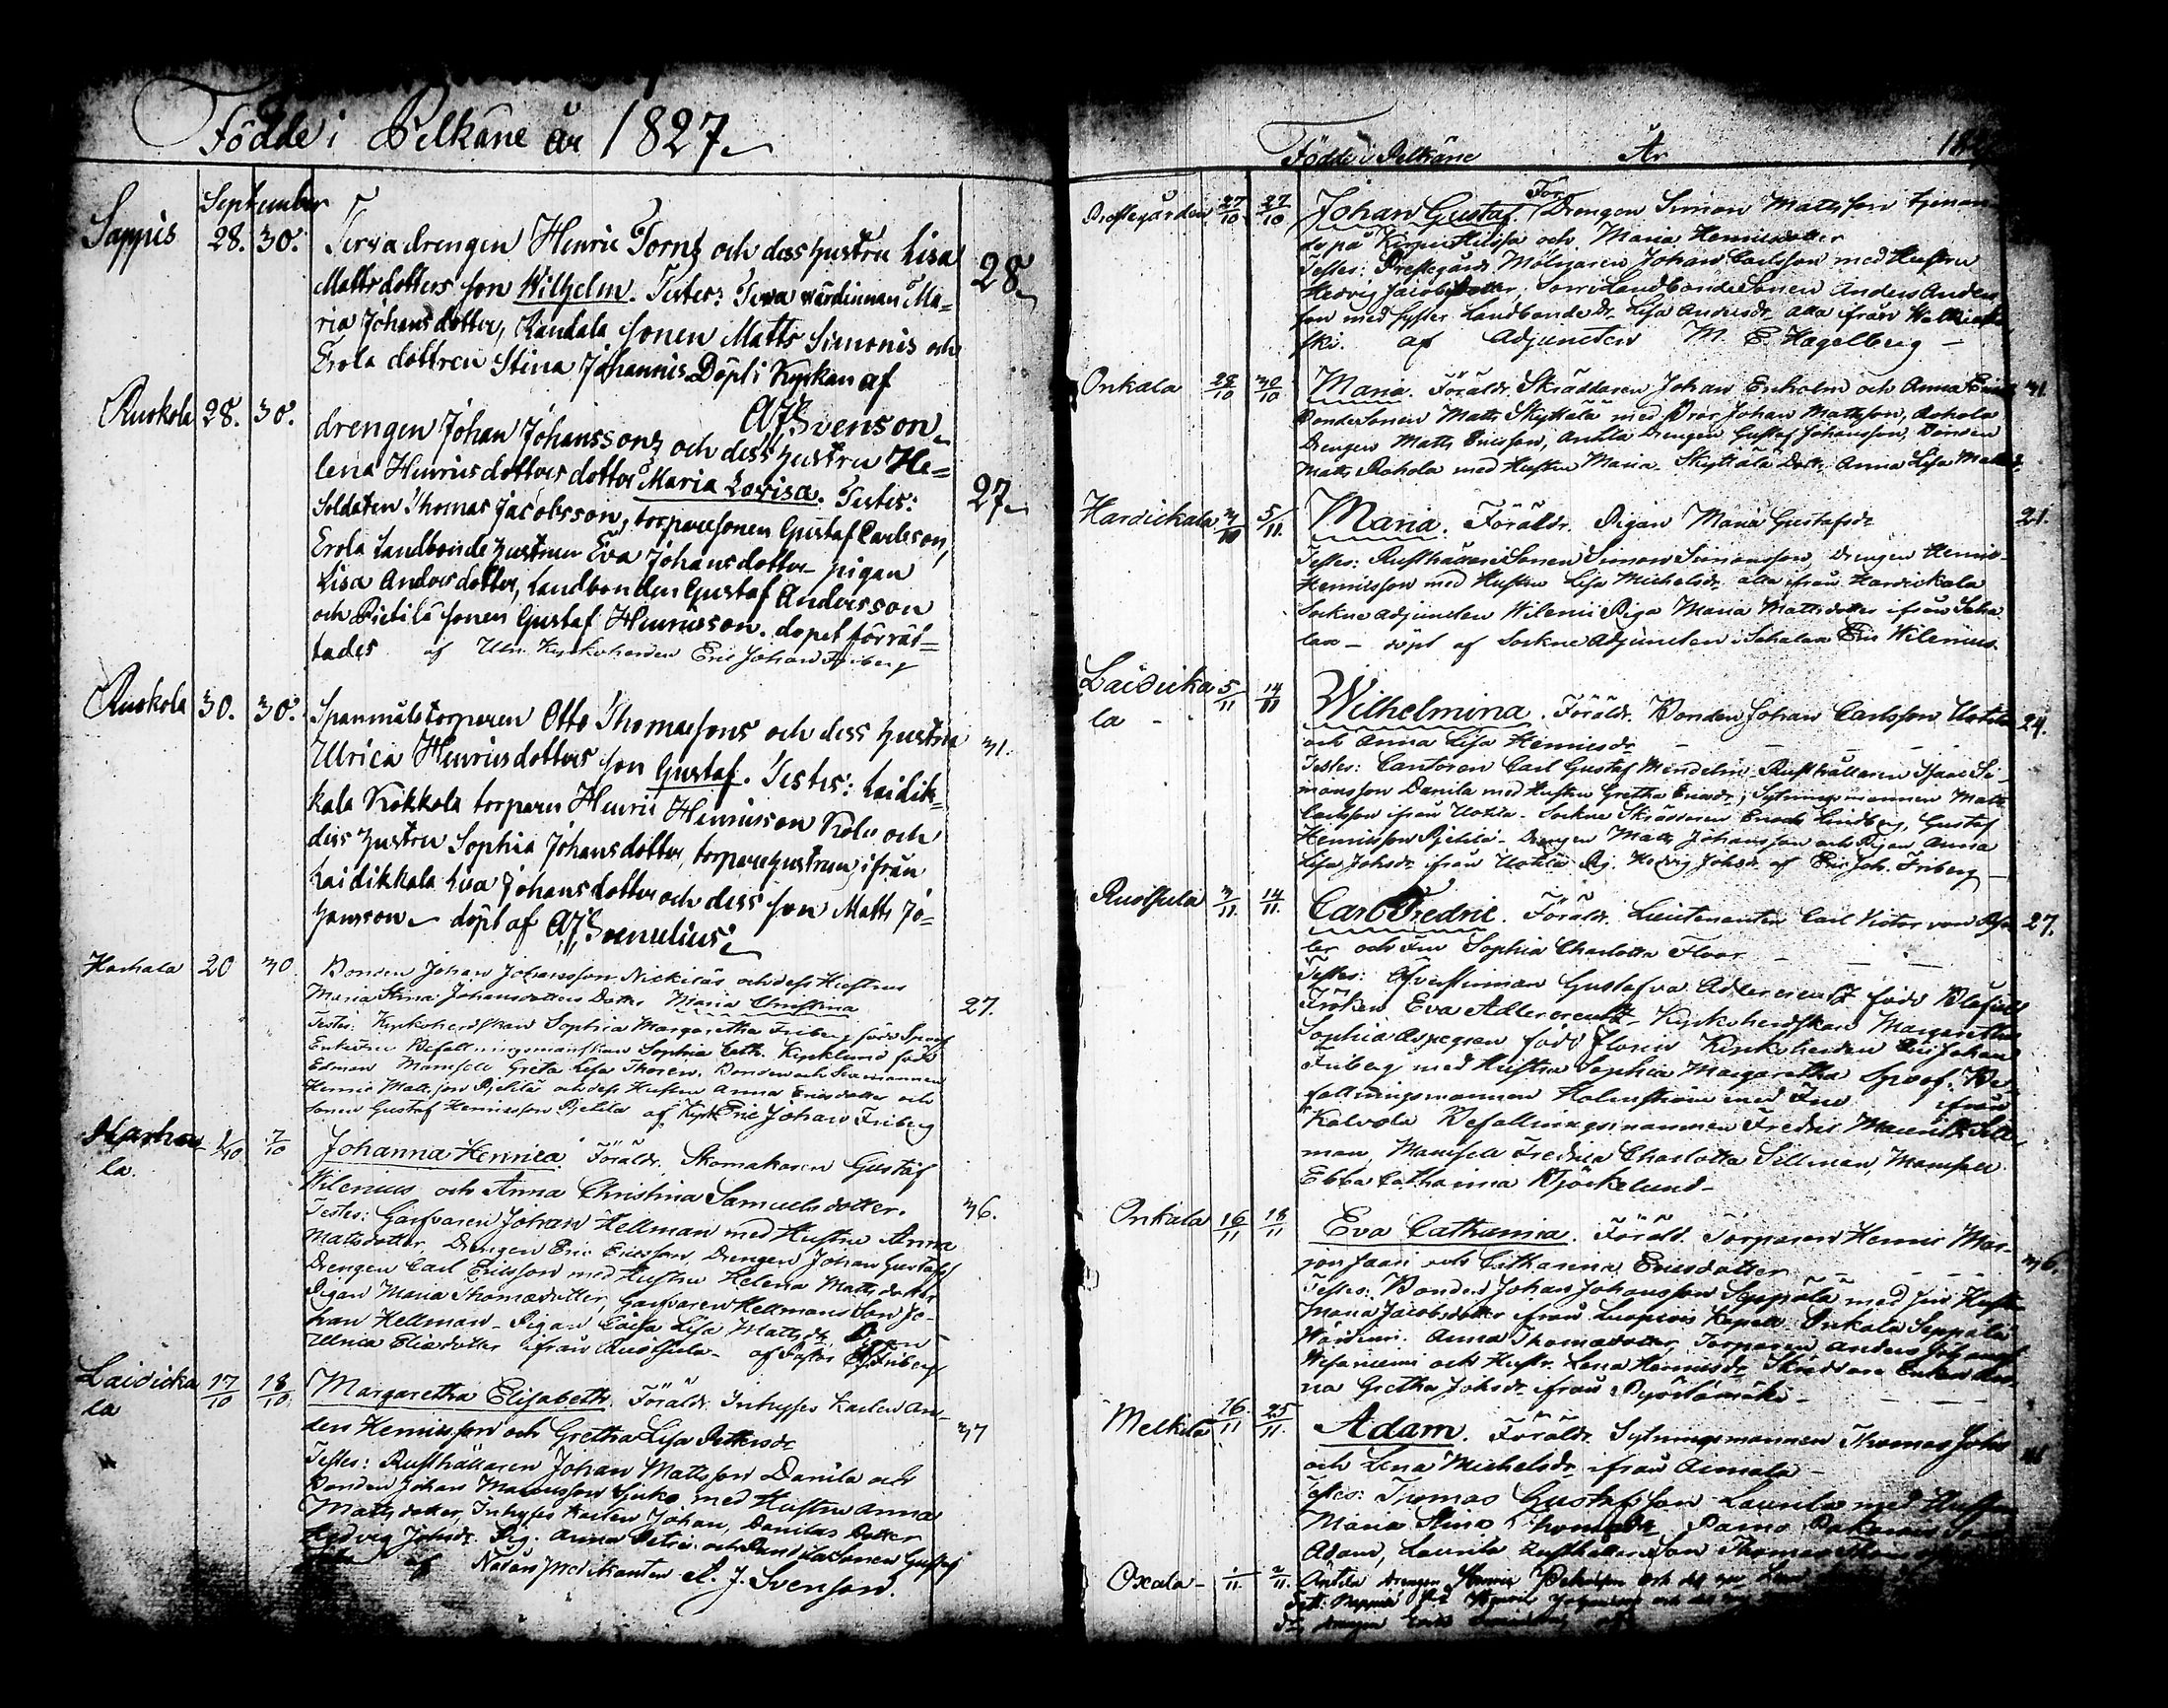 Födde i Pelkäne år 1827
September
Sappis 28. 30. Terva drengen Henric Torns och dess hustru Lisa 28
Mattsdotters son Wilhelm. Testes: Terva wärdinnan Ma=
ria Johansdotter, sonen Matts Simonis och
Erola dottren Stina Johannis Döpt i Kyrkan af
AJSvenson
Ruokola 28. 30. drengen Johan Johanssons och dess hustru He=
lena Henricsdotters dotter Maria Lovisa. Testes: 27
Soldaten Thomas Jacobsson, torparesonen Gustaf Carlsson,
Erola Landbonde hustrun Eva Johansdotter pigan
Lisa Andersdotter, Landbonden Gustaf Andersson
och Pietilä sonen Gustaf Henricsson. dopet förrät=
tades af Kyrkoherden Eric Johan Friberg
Ruokola 30. 30. Spanmålstorparen Otto Thomæsons och dess hustru 31.
Ulrica Henricsdotters son Gustaf. Testes: Laidik=
kala Kokkola torparen Henric Henricsson Kolu och
dess hustru Sophia Johansdotter, torparehustrun ifrån
Laidikkala Eva Johansdotter och dess son Matts Jo=
hansson döpt af
Harhala 20 30. Bonden Johan Johansson Nickilä och dess Hustrus
Maria Stina Johansdotters Dotter Maria Christina 27.
Testes: Kyrkoherdskan Sophia Margaretha Friberg född Spoof
Befallningsmanskan Sophia Cath. Kyrklund född
Edman Mamsell Greta Lisa Thoren. Bonden och
Henric Mattsson Pjetilä och dess Hustru Anna Ericsdotter och
sonen Gustaf Henricsson Pjetilä af Eric Johan Friberg
Harha-
la. 1/10 7/10 Johanna Henrica. Föräldr. Skomakaren Gustaf
Wilenius och Anna Christina Samuelsdotter. 36.
Testes: Garfvaren Johan Hellman med Hustru Anna
Mattsdotter, Drengen Eric Ericsson, Drengen Johan Gustafs
Drengen Carl Ericsson med Hustru Helena Mattsdotter
Pigan Maria Thomædotter, Garfvaren Hellmans Son Jo-
han Hellman. Pigan Caisa Lisa Mattsdr Pigan
Ulrica Eliædotter ifrån af Pastor Friberg
Laidicka
la 17/10 18/10 Margaretha Elisabeth. Föräldr. Inhyses Karlen An-
ders Henricsson och Gretha Lisa Pettersdr 37
Testes: Rusthållaren Johan Mattsson Danila och
Bonden Johan med Hustru Anna
Mattsdotter, Inhyses Karlen Johan, Danilas Dotter
Hedvig Johsdr. Pig. Anna Petri. och sonen Gustaf
af Nådårs Predikanten A. J. Svenson.
Födde i Pelkäne År 182
Prestegården 27/10 27/10 Johan Gustaf. För. Drengen Simon Mattsson tjenan
de på och Maria Henricsdotter
Testes: Prestegårds Mölnaren Johan Carlsson med Hustru
Hedvig Jacobsdotter, Landbonde Sonen Anders Anders
son med syster Landbonde Dr. Lisa Andersdr. alla ifrån
af Adjuncten M. E. Hagelberg
Onkala 28/10 30/10 Maria. Föräldr. Skräddaren Johan Enholm och Anna 31.
Bonde Sonen Matts Skyttälä med Bror Johan Mattsson,
Drengen Matts Ericsson, Anttila Drengen Gustaf Johansson, Bonden
Matts Rohola med Hustru Maria. Skyttälä Dottr. Anna Lisa
Hardickala 31/10 5/11. Maria. Föräldr. Pigan Maria Gustafsdr 21.
Testes: Rusthållare Sonen Simon Simonsson, Drengen Henric
Henricsson med Hustru Lisa Michelsdr. alla ifrån Hardickala
Sockne adjuncten Wilenii Piga Maria Mattsdotter ifrån Saha
lax döpt af Sockne Adjuncten i Sahalax Eric Wilenius.
Laidicka
la 5/11 14/11 Wilhelmina. Föräldr. Bonden Johan Carlsson Uotila 24.
och Anna Lisa Henricsdr
Testes: Cantoren Carl Gustaf Mendelin, Rusthållaren Isaac Si-
monsson Danila med Hustru Gretha, Sytningsmannen Matts
Carlsson ifrån Uotila. Sockne Skräddaren Enoch Lindberg, Gustaf
Henricsson Pjetilä. Drengen Matts Johansson och Pigan Anna
Lisa Johsdr. ifrån Uotila Pig. Hedvig Johsdr. af Eric Joh. Friberg
3/11. 14/11. Carl Fredric. Föräldr. Lieutenanten Carl Victor von 27.
ler och Fru Sophia Charlotta Floor
Testes: Öfverstinnan Gustafva Adlercreutz född Blåfield
Fröken Eva Adlercreutz, Kyrkoherdskan Margaretha
Sophia Aspegren född Florin Kyrkoherden Eric Johan
Friberg med Hustru Sophia Margaretha Spoof. Be-
fallningsmannen Holmström med Fru ifrån
Kalvola Befallningsmannen Fredric Mauritz Sell-
man, Mamsell Fredrica Charlotta Sellman, Mamsell
Ebba Catharina Björkelund
Onkala 16/11 18/11 Eva Catharina. Föräld. Torparen Henric Mar-
jonsaari och Catharina Ericsdotter 36.
Testes: Bonden Johan Johansson Seppälä med sin Hustru
Maria Jacobsdotter ifrån Luopiois Kapell Onkala Seppälä
Wärdinn. Anna Thomædotter, Torparen Anders Johansson
och Hustr. Lena Henricsdr. Skräddare Enkan An-
na Gretha Johsdr ifrån
Melkila 16/11 25/11. Adam. Föräldr. Sytningsmannen Thomas Johs
och Lena Michelsdr ifrån
Testes: Thomas Gustafsson Laurila med Hustru
Maria Stina
Adam, Laurila Rusthållare Son Thomas
Oxala 1/11. 2/11. Antila drengen